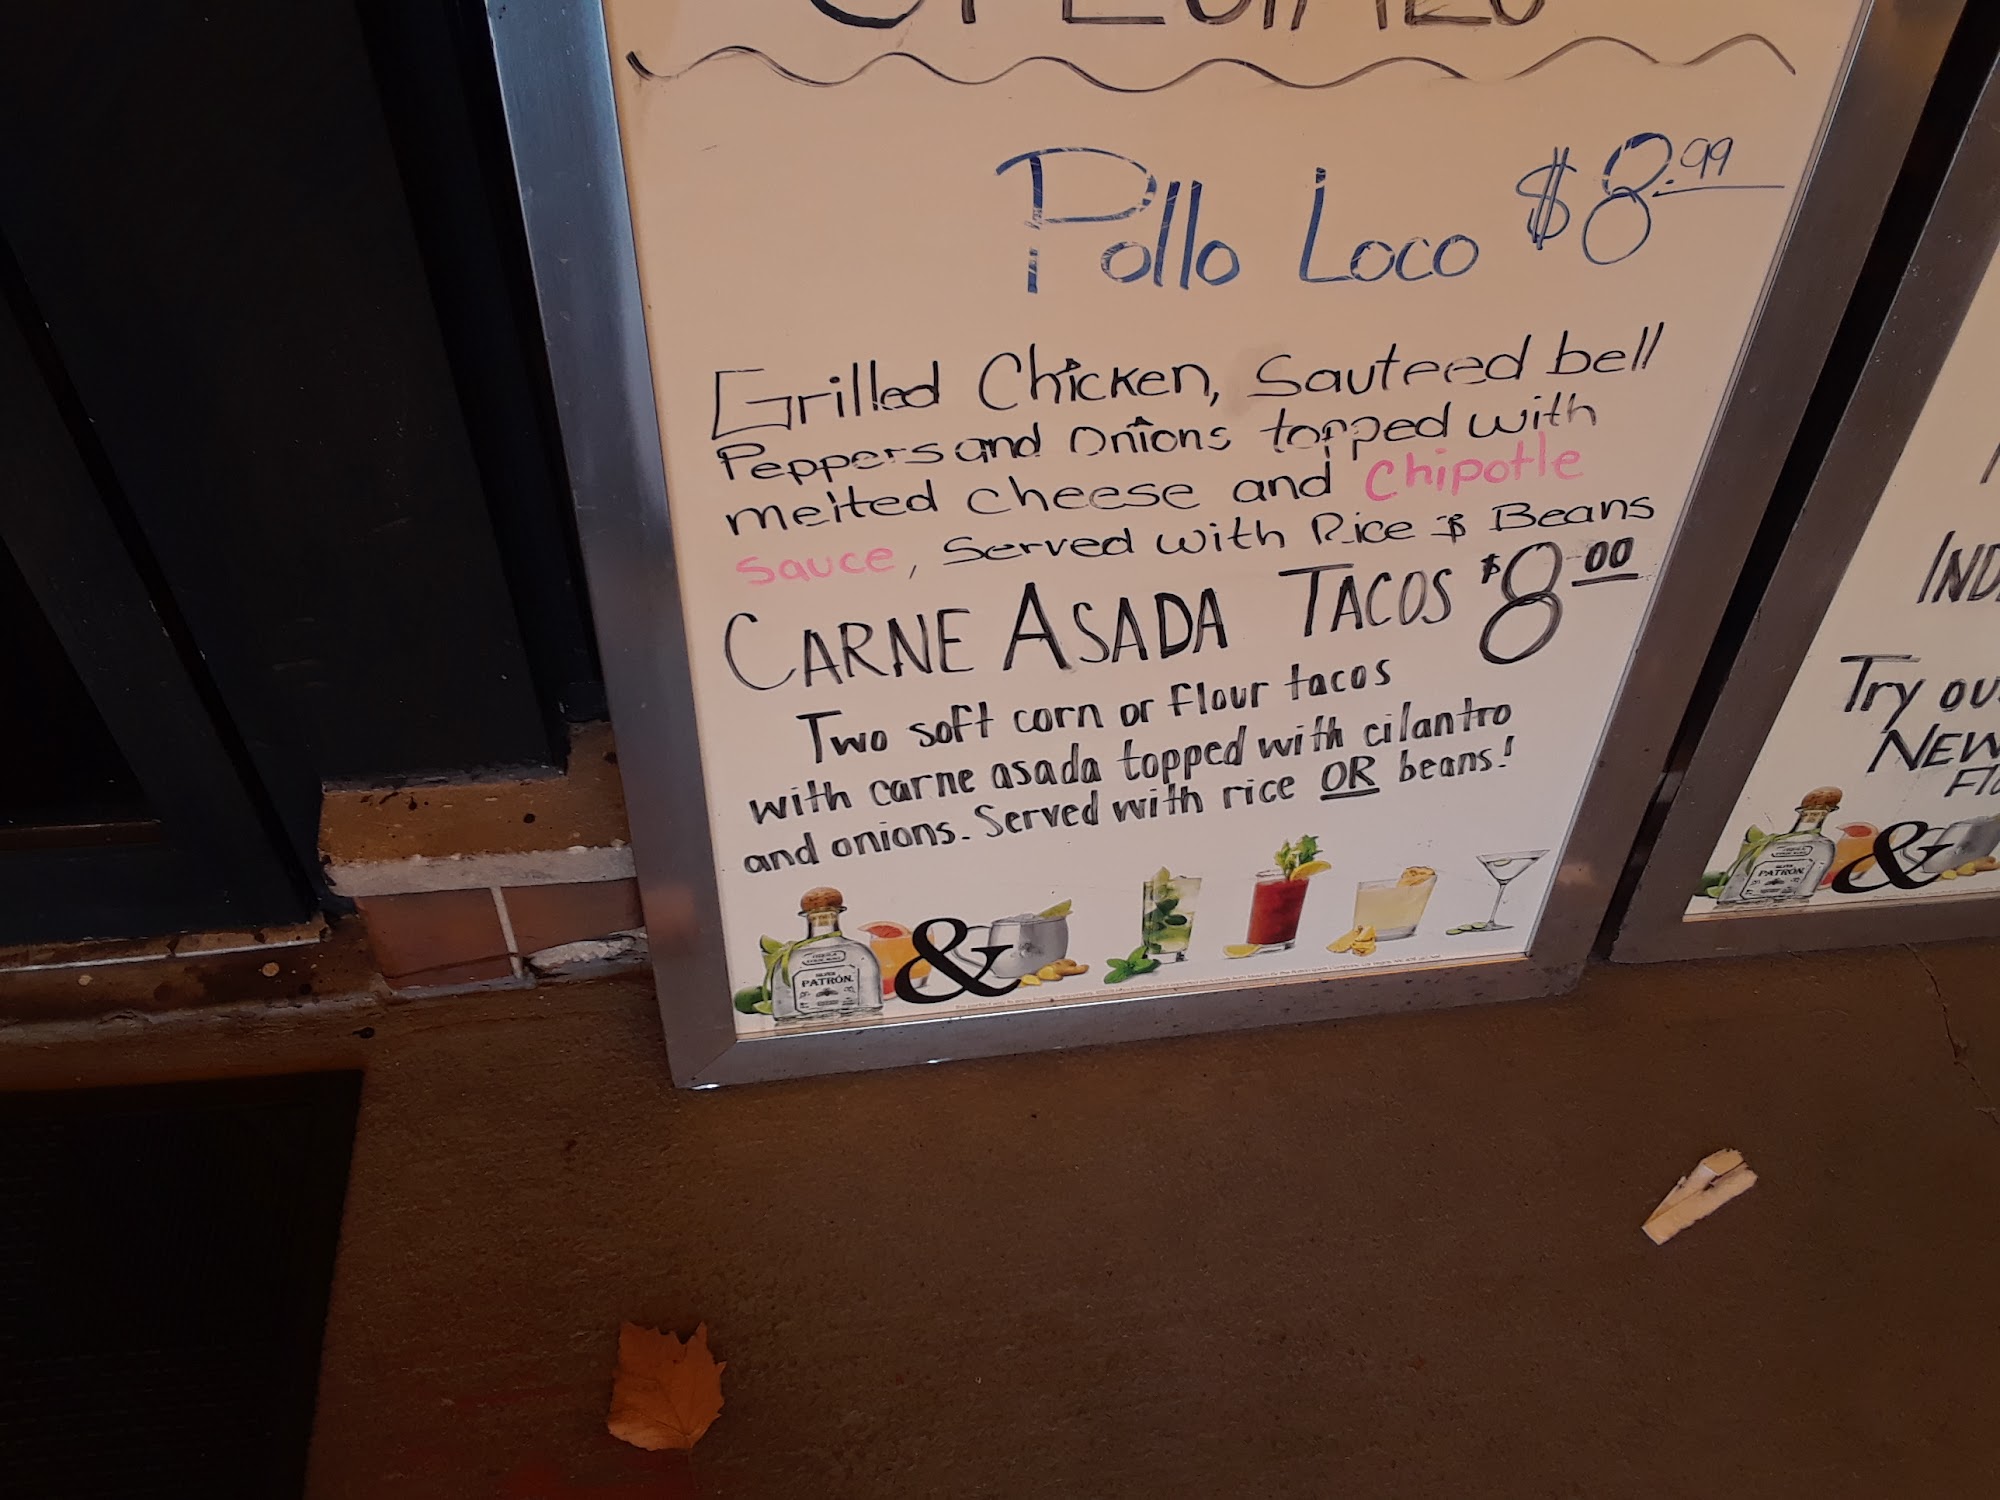 SPECIALS
Pollo Loco $8.99
Grilled Chicken, Sauteed bell
Peppers and Onions topped with
melted cheese and Chipotle
Sauce, Served with Rice $ Beans
CARNE ASADA TACOS $8.00
Two soft corn or flour tacos
with carne asada topped with cilantro
and onions. Served with rice OR beans!
PATRÓN
&
Try
NEW
PATRÓN
&